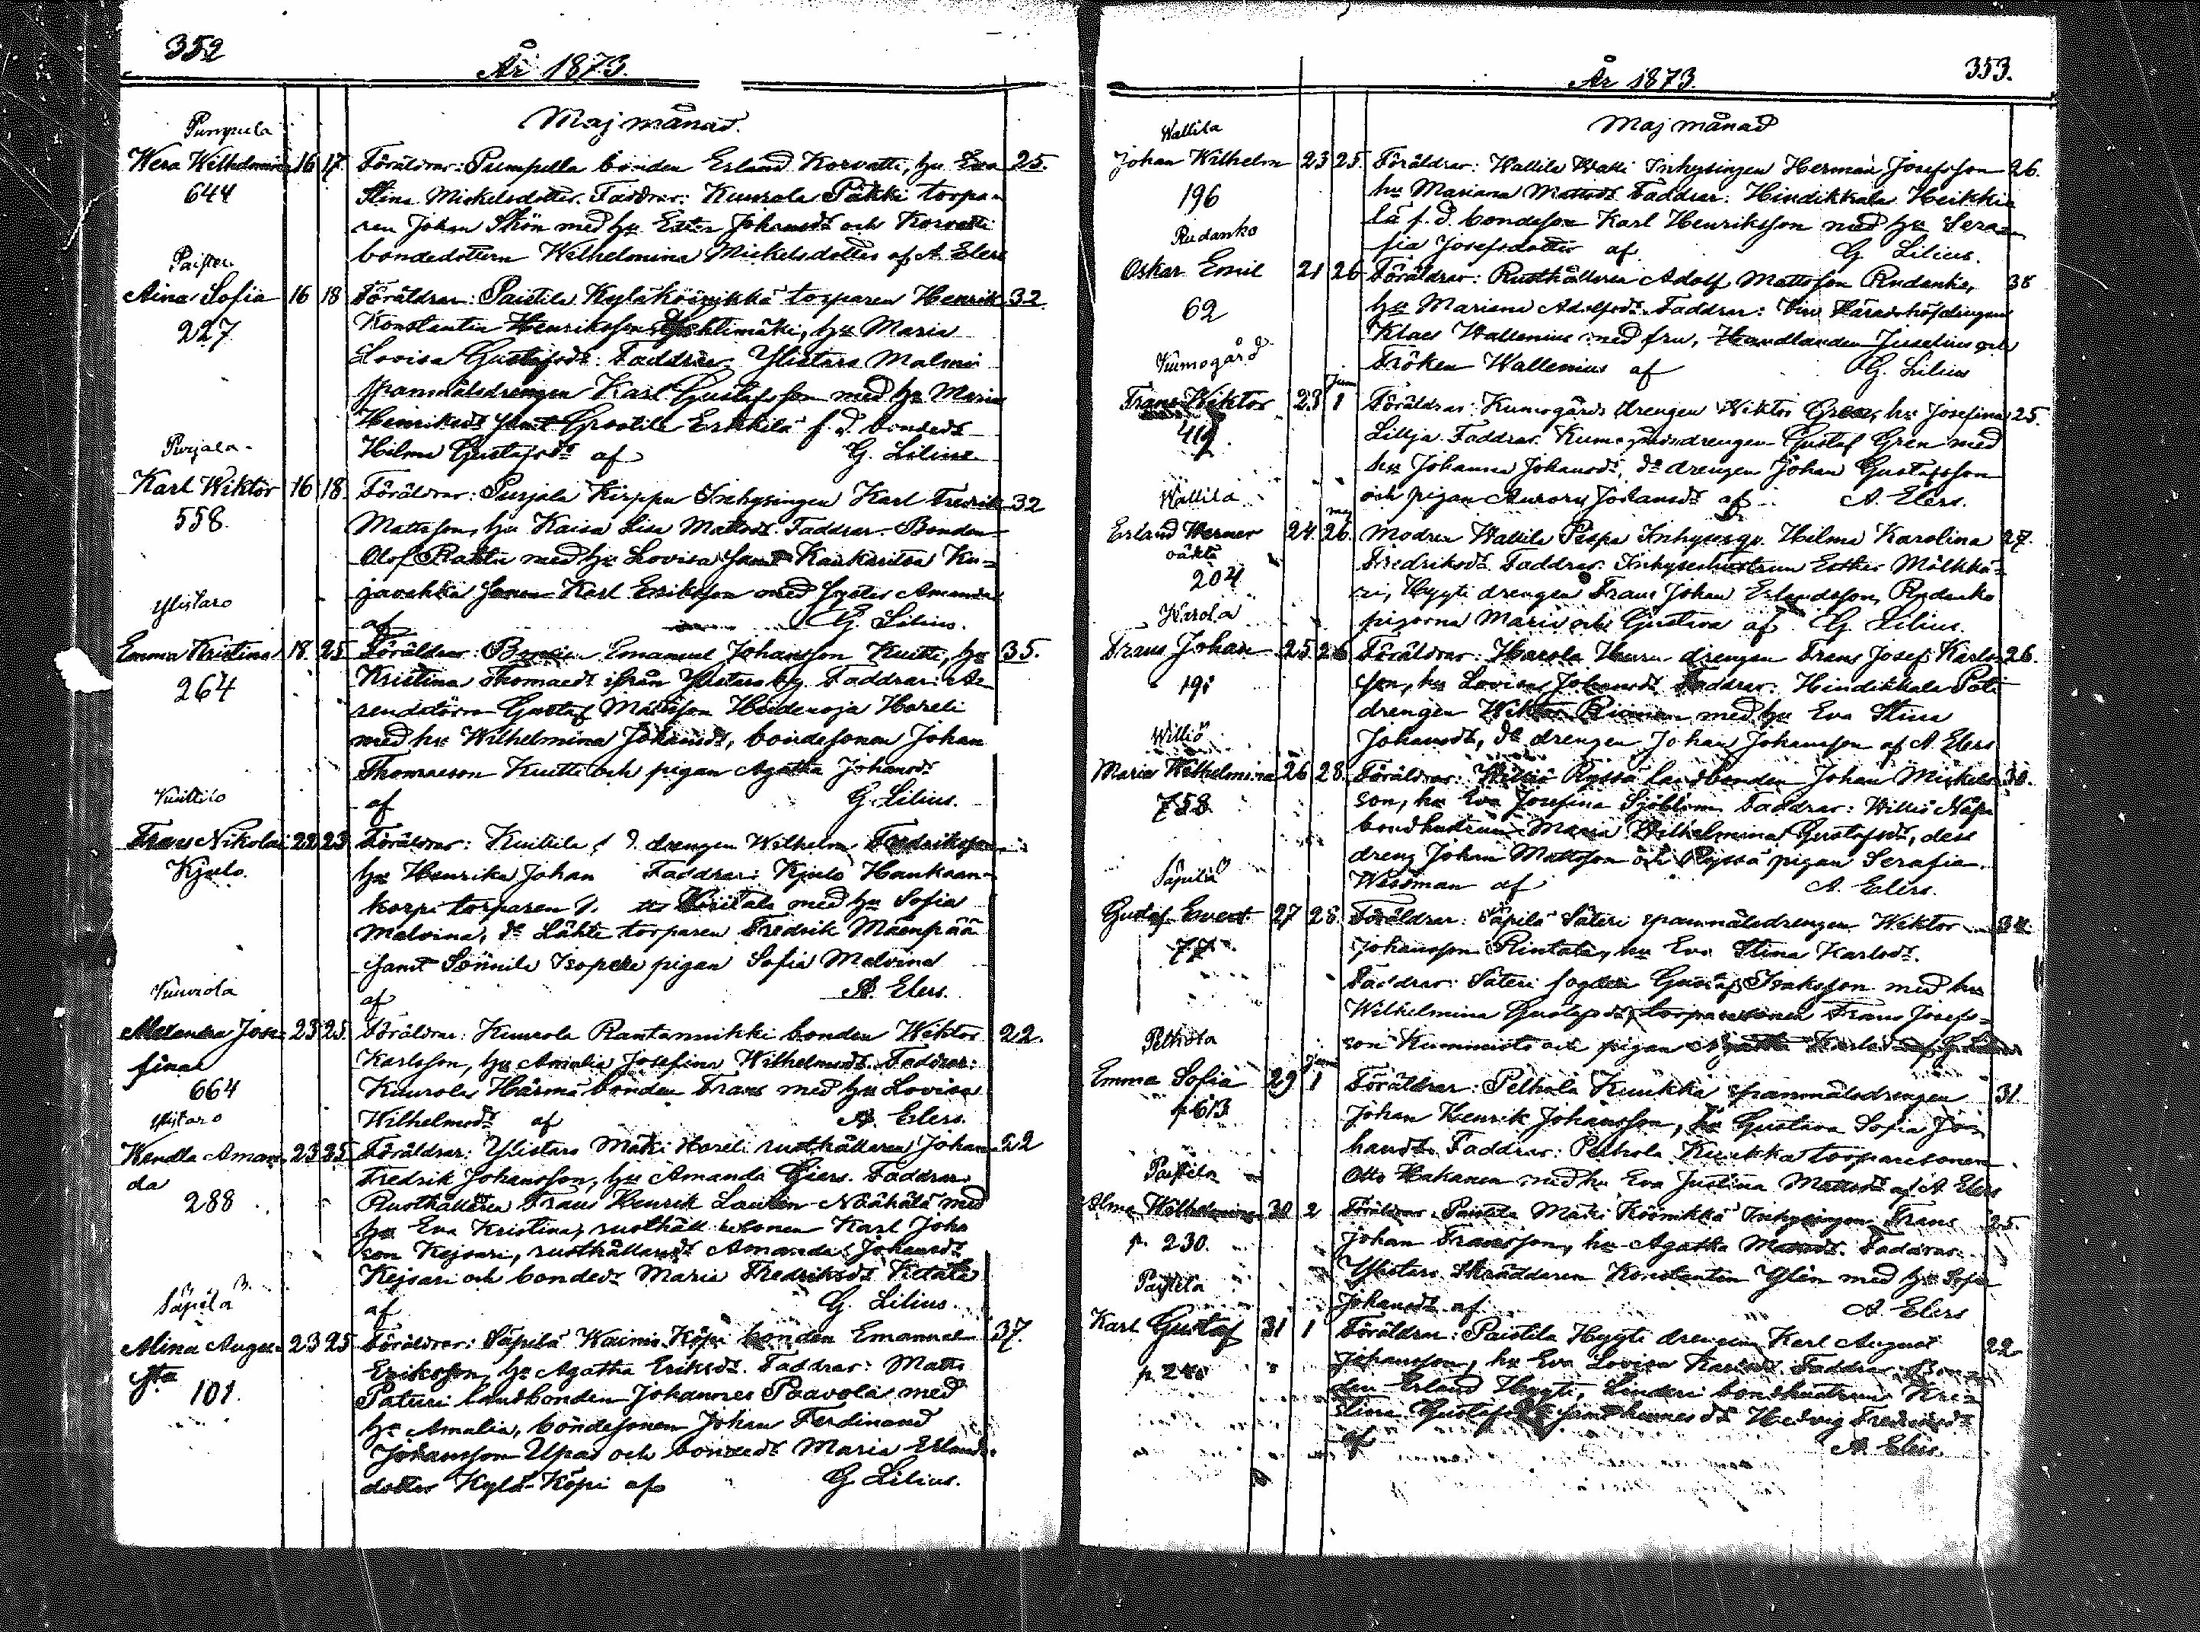 352
År 1873.
Maj månad.
Pumpula
Wera Wilhelmina 16 17 Föräldrar: Pumpulla bonden Erland Korvatti, hu Eva 25.
644 Stina Mickelsdotter. Faddrar: Kuurola Päkki torpa-
ren Johan Skön med hu Ester Johansdr och Korvatti
bondedottern Wilhelmina Mickelsdotter af A. Elers
Aina Sofia 16 18 Föräldrar: Paistila Kyläköönikkä torparen Henrik 32
227 Konstantin Henriksson, hu Maria
Lovisa Gustafsdr. Faddrar: Ylistaro Malmi
spanmålsdrengen Karl Gustafsson med hu Maria
Henriksdr samt Grootila Erkkilä f. d. bondedr
Hilma Gustafsdr af G. Lilius
Purjala
Karl Wiktor 16 18 Föräldrar: Purjala Kirppu Inhysingen Karl Fredrik 32
558. Mattsson, hu Kaisa Lisa Mattsdr. Faddrar: Bonden
Olof med hu Lovisa samt Kaukaritsa Ku-
javahka sonen Karl Eriksson med syster Amanda
af G. Lilius.
Ylistaro
Emma Kristina 18 25 Föräldrar: Bonden Emanuel Johansson Kuitti, hu 35.
264 Kristina Thomaedr ifrån Ylistaro by. Faddrar: Ar-
rendatorn Gustaf Mattsson Heidenoja Hareli
med hu Wilhelmina Johansdr, bondesonen Johan
Thomasson Kuitti och pigan Agatha Johansdr
af G. Lilius.
Kuittilo
Frans Nikolai 22 23 Föräldrar: Kuittila f. d. drengen Wilhelm Fredriksson
Kjulo. hu Henrika Johan Faddrar: Kjulo Haukaan-
korpi torparen med hu Sofia
Malvina, dr Lähte torparen Fredrik Mäenpää
samt Sonnila Isopere pigan Sofia Malvina
af A. Elers.
Kuurola
Alexandra Jose- 23 25 Föräldrar: Kuurola Rantannikki bonden Wiktor 22.
fina Karlsson, hu Amalia Josefina Wilhelmsdr. Faddrar:
664 Kuurola Härmä bonden Frans med hu Lovisa
Wilhelmsdr af A. Elers.
Ylistaro
Wendla Aman- 23 25 Föräldrar: Ylistaro Mäki Hareli rusthållaren Johan 22
da Fredrik Johansson, hu Amanda Giers. Faddrar:
288 Rusthållaren Frans Henrik Laurén Näähälä med
hu Eva Kristina, rusthåll. sonen Karl Johs
son Kejsari, rusthållaredr Amanda Johansdr
Kejsari och bondedr Maria Fredriksdr
af G. Lilius.
Säpilä
Alina Augu- 23 25 Föräldrar: Säpilä Wainio Köpi bonden Emanuel 37.
sta Eriksson, hu Agatha Eriksdr. Faddrar: Matts
101. Paturi landbonden Johannes Paavola med
hu Amalia, bondesonen Johan Ferdinand
Johansson Upas och bondedr Maria Erlands-
dotter Kylä-Köpi af G Lilius.
353.
År 1873.
Maj månad
Wallila
Johan Wilhelm 23 25. Föräldrar: Wallila Inhysingen Herman Josefsson 26.
196 hu Mariana Mattsdr. Faddrar: Hindikkala Heikki-
lä f. d. bondeson Karl Henriksson med hu Sera-
fia Josefsdotter af G. Lilius.
Rudanko
Oskar Emil 21 26 Föräldrar: Rusthållaren Adolf Mattsson Rudanko, 38
62 hu Mariana Adolfsdr. Faddrar: Vice Häradshöfdingen
Klaes Wallenius med fru, Handlanden Juselius och
Fröken Wallenius af G. Lilius
Kumogård
Juni
Frans Wiktor 23 1 Föräldrar: Kumogårds drengen Wiktor Green, hu Josefina 25.
412. Lillja. Faddrar: Kumogårdsdrengen Gustaf Gren med
hu Johanna Johansdr, dr drengen Johan Gustafsson
och pigan Aurora Johansdr af A. Elers.
Wallila
maj
Erland Werner 24. 26. Modren Wallila Pispa Inhyseqv. Hilma Karolina 27.
oäkta Fredriksdr. Faddrar: Inhyseshustrun Esther Mälkkä-
204 ri, Hyyti drengen Frans Johan Erlandsson, Rudanko
pigorna Maria och Gustava af G. Lilius.
Harola
Frans Johan 25. 26 Föräldrar: Harola Huru drengen Frans Josef Karls- 26.
191 son, hu Lovisa Johansdr. Faddrar: Hindikkala Poti
drengen Wiktor med hu Eva Stina
Johansdr, dr drengen Johan Johansson af A. Elers
Williö
Maria Wilhelmina 26 28. Föräldrar: Williö Ryssä landbonden Johan Mickels- 30.
758 son, hu Eva Josefina Sjöblom. Faddrar: Williö Näpi
bondhustrun Maria Wilhelmina Gustafsdr, dess
dreng Johan Mattsson och Ryssä pigan Serafia
Widman af A. Elers.
Säpilä
Gustaf Evert 27 28. Föräldrar: Säpilä Säteri spanmålsdrengen Wiktor
77 Johansson Rintala, hu Eva Stina Karlsdr.
Faddrar: Säteri fogden Gustaf Isaksson med hu
Wilhelmina Gustafsdr, torparesonen Frans Josefs-
son Kummisto och pigan
Pelhola
Juni
Emma Sofia 29 1 Föräldrar: Pelhola Kuukka spanmålsdrengen 31
p 613 Johan Henrik Johansson, hu Gustava Sofia Jo-
hansdr. Faddrar: Pelhola Kuukka torparesonen
Otto Hakanen med hu Eva Justina Mattsdr af A. Elers
Paistila
Alma Wilhelmina 30 2 Föräldrar: Paistila Mäki Köönikkä Inhysingen Frans 25.
p. 230. Johan Fransson, hu Agatha Mattsdr. Faddrar:
Ylistaro Skräddaren Konstantin Ylén med hu Sofia
Johansdr af A. Elers
Paistila
Karl Gustaf 31 1 Föräldrar: Paistila Hyyti drengen Karl August 22
p. 240 Johansson, hu Eva Lovisa Karlsdr. Faddrar: Bon-
den Erland Hyyti, Linderi bondhustrun Kri-
stina Gustafsdr samt hennes dr Hedvig Fredriksdr
af A. Elers.